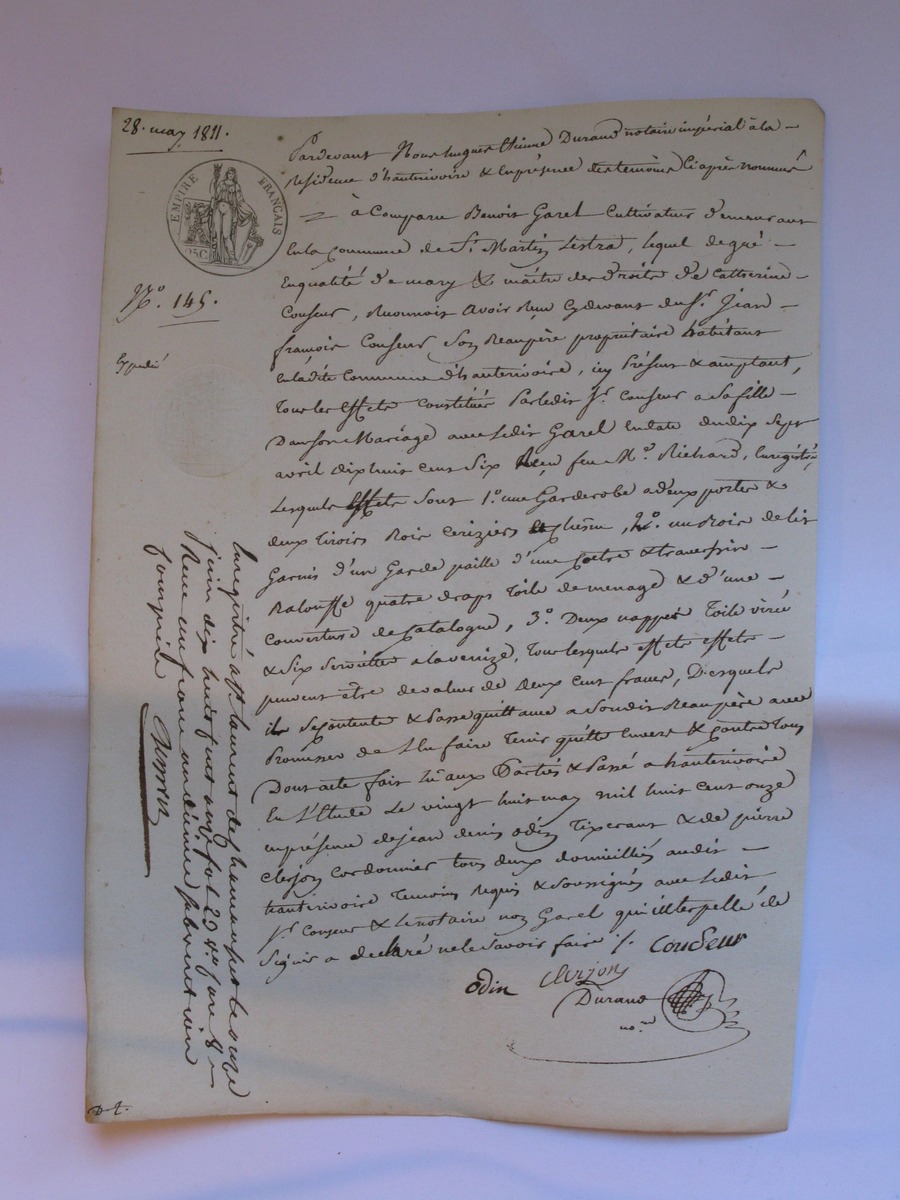 28. may 1811.
EMPIRE FRANÇAIS
25 C.
N.º 145.
Expédié
Pardevant Nous hugues Etienne Durand notaire impérial à la
résidence d'hauterivoire & En présence des temoins Ci après nommés
à Comparu Benoit Garel Cultivateur demeurant
En la Commune de S.t Martin Lestra, lequel de gré
En qualité de mary & maitre des droits de Catherine
Couseur, Reconnoit avoir Reçu Cydevant du S.r Jean
francois Couseur Son Beaupère propriétaire habitant
En ladite Commune d'hauterivoire, icy Présent & acceptant,
Tous les Effets Constitués Par ledit S.r Couseur a Sa fille
Dans Son Mariage avec Ledit Garel En date du dix Sept
avril dix huit cent Six Reçu feu M.e Richard, Enregistré,
Lesquels Effets Sont 1.º une Garderobe a deux portes &
deux tiroirs Bois Ceriziers & Chesne, 2.º un Bois de lit
Garnis d'un Garde paille d'une Coetre & traversin
Balouffe quatre draps Toile de menage & d'une
Couverture de Catalogne, 3.º Deux nappes Toile
& Six Serviettes a la venize, Tous lesquels effets effets
peuvent être de valeur de Deux Cent francs, Desquels
il Se Contente & Passe quittance a Son dit Beaupère avec
Promesse de L'En faire Tenir quitte Envers & Contre Tous
Dont acte fait Lu aux Parties & Passé a hauterivoire
En L'Etude Le vingt huit may mil huit Cent onze
en présence de jean denis odin Tixerant & de pierre
Clerjon Cordonnier tous deux domiciliés audit
hauterivoire Temoins Requis & Soussignés avec Ledit
S.r Couseur & Le notaire non Garel qui interpellé de
Signer a declaré ne le Savoir faire ./.
Couseur
odin Clerjon
Durand
no.re
Enregistré à St Laurent de Chamousset le onze
juin dix huit cent onze fol 20 r.º Case 8
Reçu un franc un dixième Subvention
Comprise
D. t.